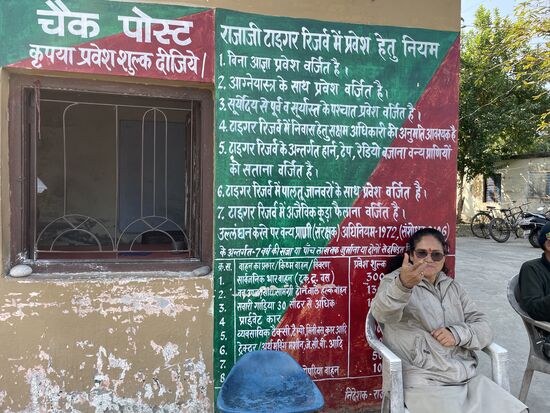 चैक पोस्ट
कृपया प्रवेश शुल्क दीजिये।
राजाजी टाइगर रिजर्व में प्रवेश हेतु नियम
1. बिना आज्ञा प्रवेश वर्जित है।
2. आग्नेयास्त्र के साथ प्रवेश वर्जित है।
3. सूर्योदय से पूर्व व सूर्यास्त के पश्चात प्रवेश वर्जित है।
4. टाइगर रिजर्व में निवास हेतु सक्षम अधिकारी की अनुमति आवश्यक है
5. टाइगर रिजर्व के अन्तर्गत हार्न, टेप, रेडियो बजाना वन्य प्राणियों
को सताना वर्जित है।
6. टाइगर रिजर्व में पालतू जानवरों के साथ प्रवेश वर्जित है।
7. टाइगर रिजर्व में अजैविक कूड़ा फैलाना वर्जित है।
उल्लंघन करने पर वन्य प्राणी (संरक्षण) अधिनियम-1972, (संशोधित
के अन्तर्गत-7 वर्ष की सजा या पाँच लाख जुर्माना या दोनों
क्र.सं. वाहन का प्रकार/ प्रवेश शुल्क
1. सार्वजनिक भार वाहन (ट्रक, बस) 300
2. वाहन
3. सवारी गाड़ियां 30 सीटर से अधिक
4. प्राईवेट कार
5. व्यवसायिक टैक्सी, टैम्पो, मिनी बस, कार आदि
6. ट्रैक्टर/ मशीन, जे.सी.बी. आदि
7.
वाहन
निदेशक-